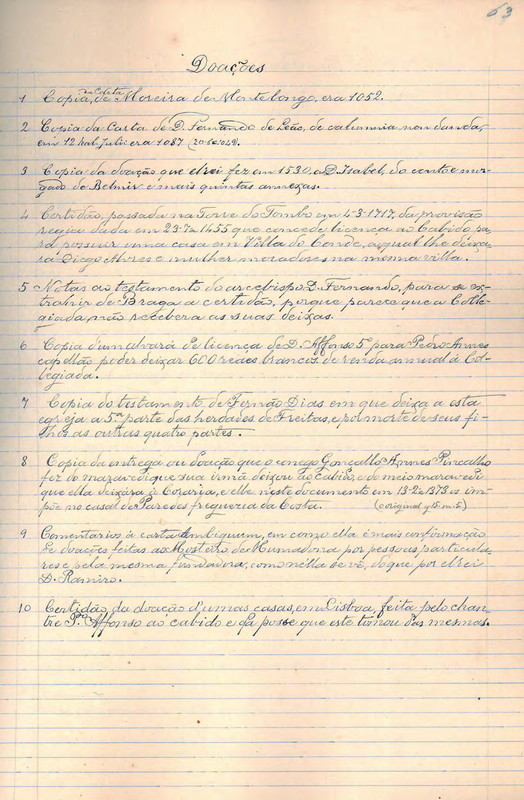 63
Doações
1 Copia, da Carta de Moreira de Montelongo, era 1052.
2 Copia da Carta de D. Fernando de Leão, de calumnia non danda,
em 12 kal. Julii era 1087 (20-6-1049).
3 Copia da doação que elrei fez em 1530, a D. Isabel, do conto e mor-
gado de Belmir e mais quintas annexas.
4 Certidão, passada na Torre do Tombo em 4-3-1717, da provisão
regia dada em 1455 que concede licença ao Cabido pa-
ra possuir uma casa em Villa do Conde, a qual lhe deixa-
rá Diogo Alvres e mulher moradores na mesma villa.
5 Notas ao testamento do arcebispo D. Fernando, para se ex-
trahir de Braga a certidão, porque parece que a Colle-
giada não recebera as suas deixas.
6 Copia d'um alvará de licença de D. Affonso 5º para Pedro Annes
capellão poder deixar 600 reaes brancos de renda annual á Col-
legiada.
7 Copia do testamento de Fernão Dias em que deixa a esta
egreja a 5ª parte das herdades de Freitas, e por morte de seus fi-
lhos as outras quatro partes.
8 Copia da entrega ou doação que o conego Gonçallo Annes
fez do maravedi que sua irmã deixou ao Cabido, e do meio maravedi
que ella deixára á Coraria, e elle neste documento em 13-2-1373 os im-
põe no casal de Paredes freguezia da Costa. (original
9 Comentarios á carta Ambiguum, em como ella é mais confirmação
de doações feitas ao Mosteiro de Mumadona por pessoas particula-
res e pela mesma fundadora, como nella se vê, do que por elrei
D. Ramiro.
10 Certidão da doação d'umas casas, em Lisboa, feita pelo chan-
tre Affonso ao cabido e da posse que este tomou das mesmas.